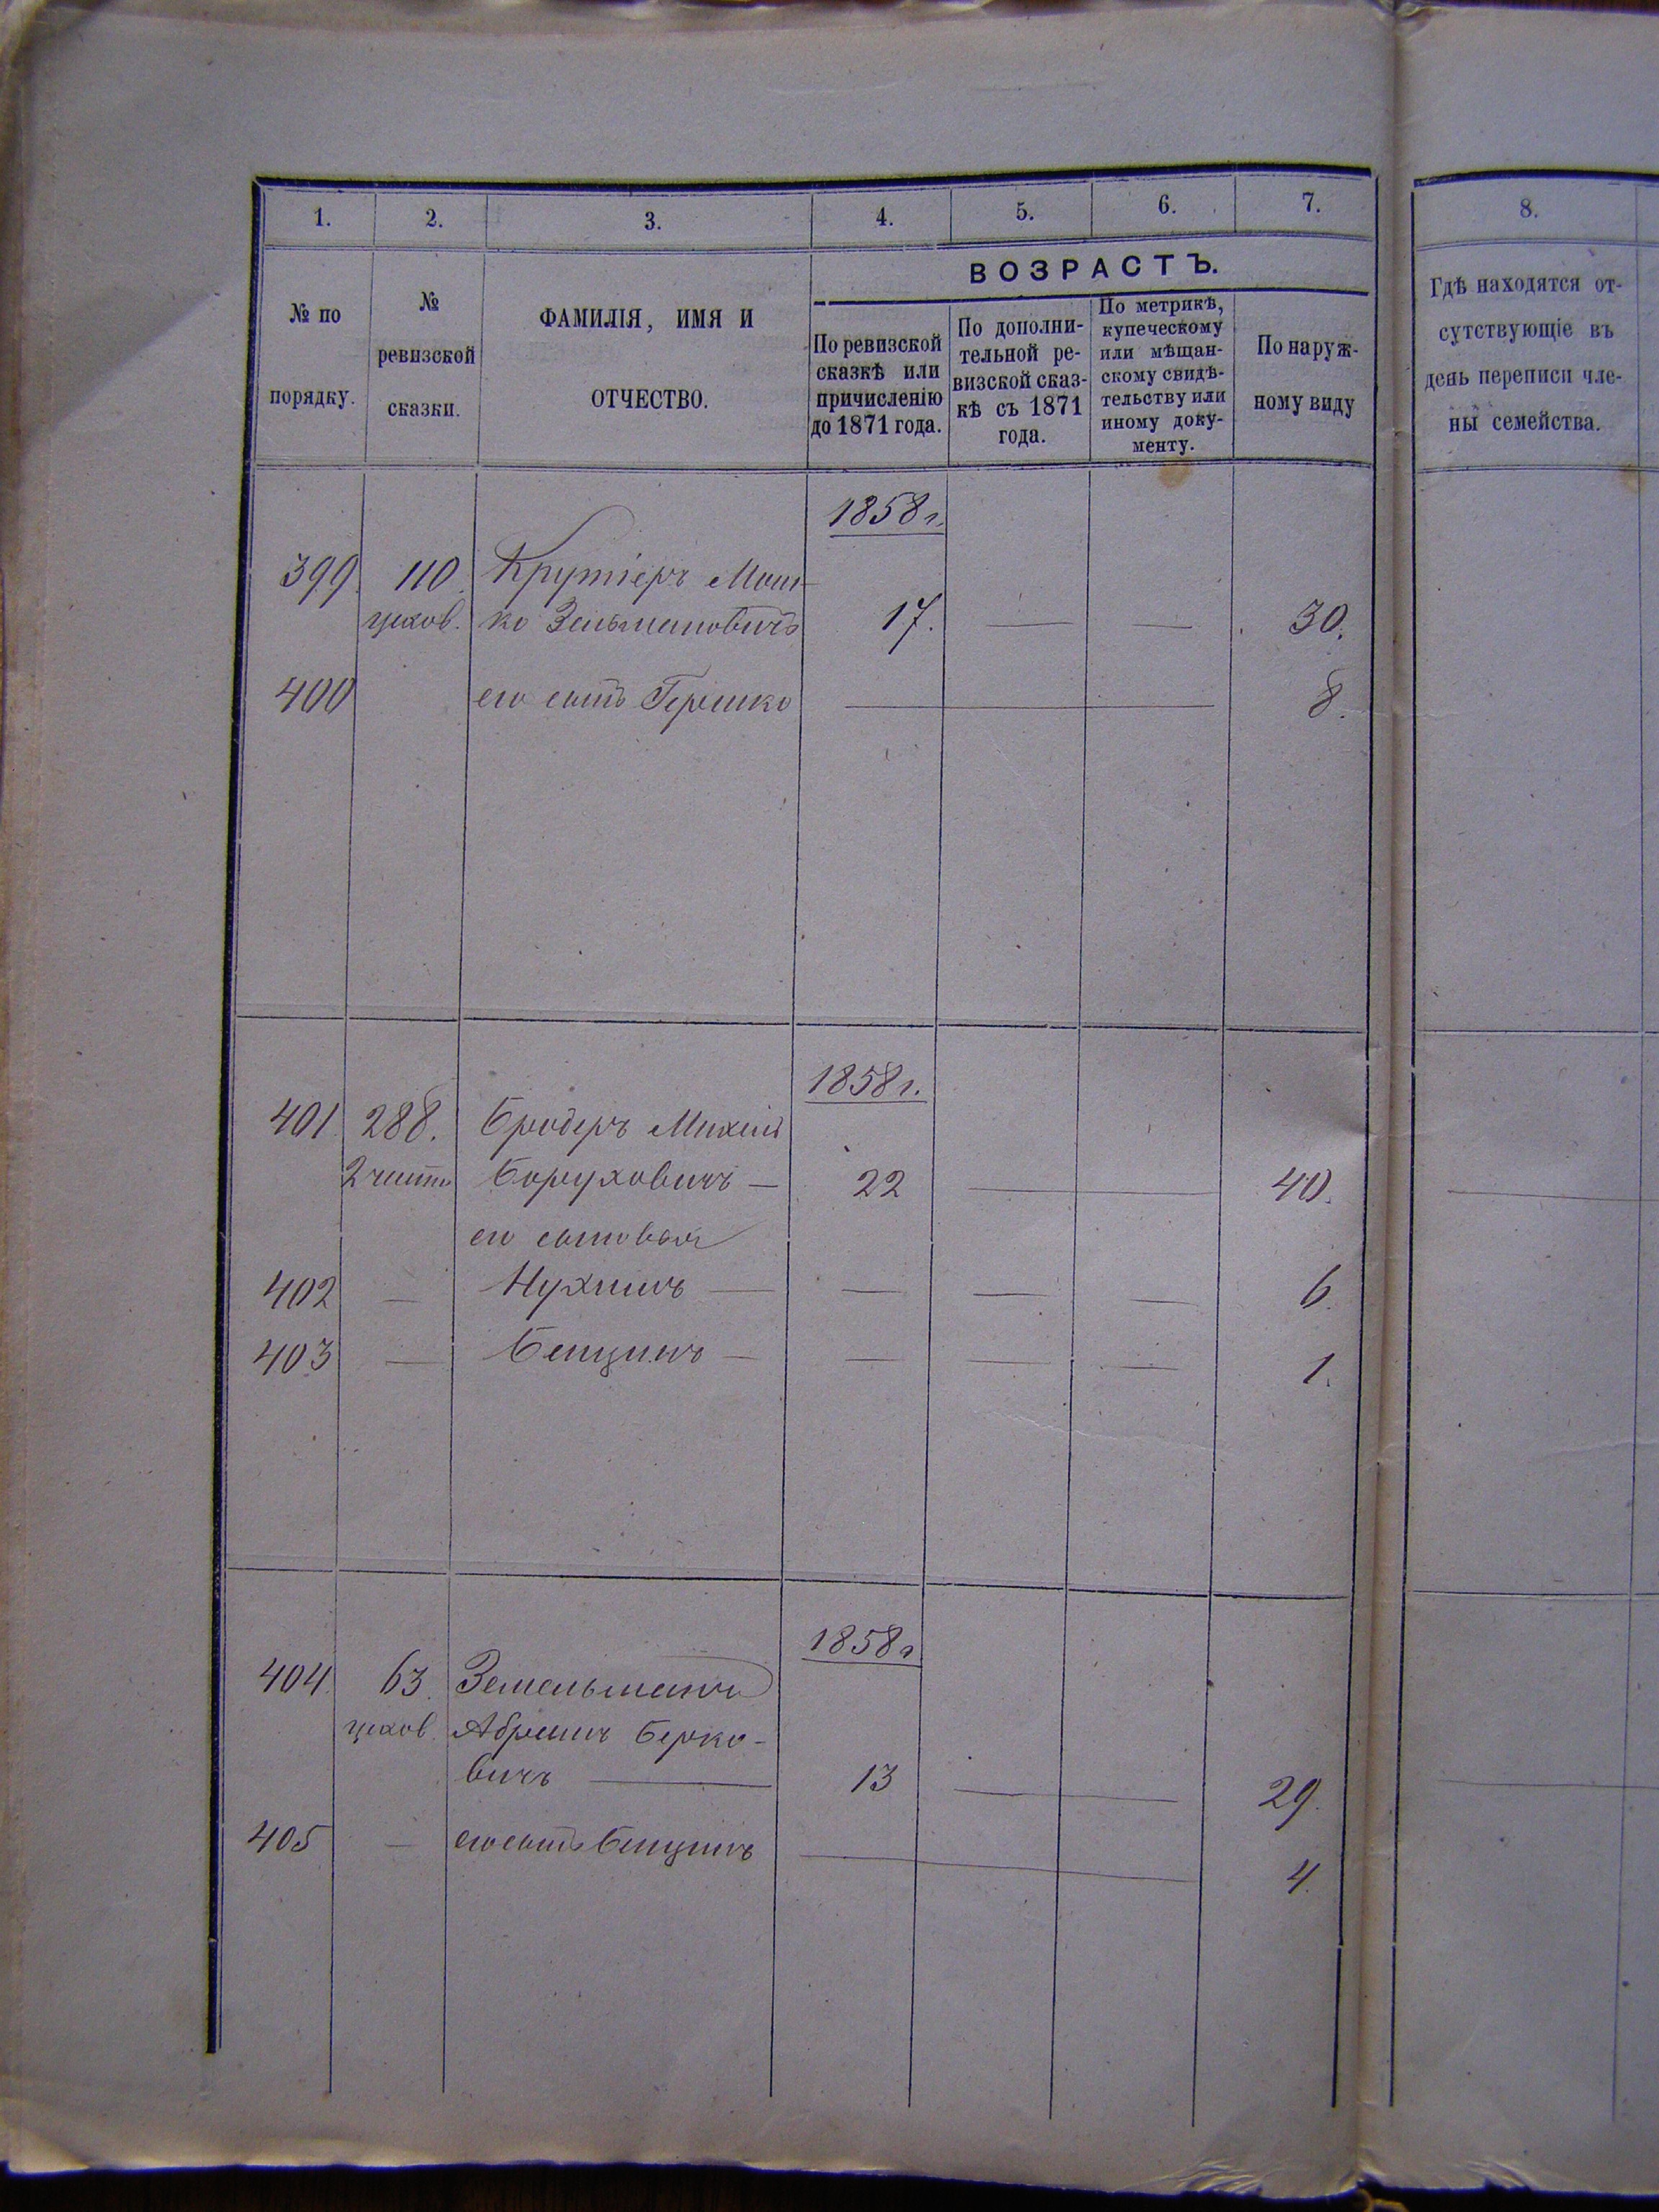 1. 2. 3. 4. 5. 6. 7. 8.
ВОЗРАСТЪ.
№ по
порядку.
№
ревизской
сказки.
ФАМИЛІЯ, ИМЯ И
ОТЧЕСТВО.
По ревизской
сказкѣ или
причисленію
до 1871 года.
По дополни-
тельной ре-
визской сказ-
кѣ съ 1871
года.
По метрикѣ,
купеческому
или мѣщан-
скому свидѣ-
тельству или
иному доку-
менту.
По наруж-
ному виду
Гдѣ находятся от-
сутствующіе въ
день переписи чле-
ны семейства.
1858 г.
399. 110. Крутіеръ Мош-
цехов. ко Зельмановичъ 17. — — 30.
400 его сынъ Гершко — 8.
1858 г.
401. 288. Бродеръ Михель
2 части Боруховичъ — 22 — 40.
его сыновья
402 — Нухимъ — — — — 6.
403 — Бенціонъ — — — — 1.
1858 г
404. 63. Земельманъ
цехов. Абрамъ Берко-
вичъ — 13 — 29.
405 — его сынъ Бенціонъ — 4.